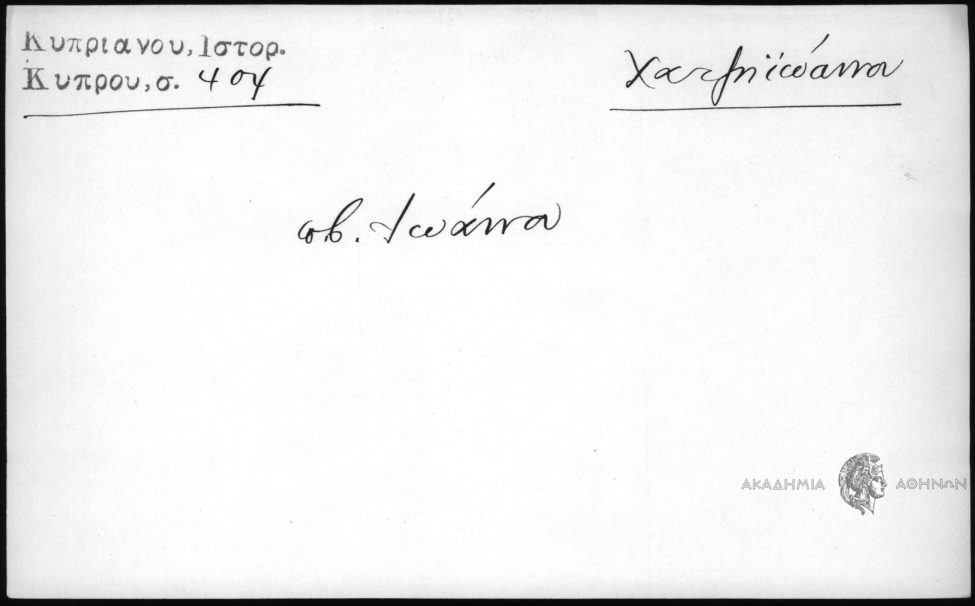 Κυπριανου, Ιστορ.
Κυπρου, σ. 404
Χατζηϊωάννου
πβ. Ιωάννου
ΑΚΑΔΗΜΙΑ ΑΘΗΝΩΝ